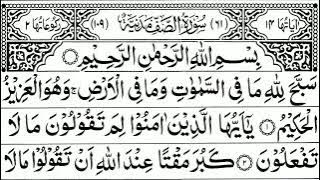 اٰيَاتُهَا ١٤ (٦١) سُوْرَةُ الصَّفِّ مَدَنِيَّةٌ (١٠٩) رُكُوْعَاتُهَا ٢
بِسْمِ اللّٰهِ الرَّحْمٰنِ الرَّحِيْمِ ○
سَبَّحَ لِلّٰهِ مَا فِى السَّمٰوٰتِ وَمَا فِى الْاَرْضِ ۚ وَهُوَ الْعَزِيْزُ
الْحَكِيْمُ ۝۱ يٰۤاَيُّهَا الَّذِيْنَ اٰمَنُوْا لِمَ تَقُوْلُوْنَ مَا لَا
تَفْعَلُوْنَ ۝۲ كَبُرَ مَقْتًا عِنْدَ اللّٰهِ اَنْ تَقُوْلُوْا مَا لَا